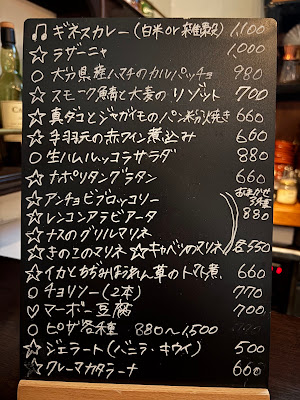 ♫ ギネスカレー(白米or雑穀) 1,100
☆ ラザーニャ 1,000
○ 大分県産ハマチのカルパッチョ 980
☆ スモーク鯖と大麦のリゾット 700
☆ 真ダコとジャガイモのパン粉焼き 660
☆ 手羽元の赤ワイン煮込み 660
○ 生ハムルッコラサラダ 880
☆ ナポリタングラタン 660
☆ アンチョビブロッコリー
☆ レンコンアラビアータ
☆ ナスのグリルマリネ
おまかせ
3種
880
☆ きのこのマリネ ☆ キャベツのマリネ 各550
☆ イカとちぢみほうれん草のトマト煮 660
○ チョリソー(2本) 770
♡ マーボー豆腐 700
○ ピザ各種 880〜1,500
☆ ジェラート(バニラ・キウイ) 500
☆ クレーマカタラーナ 660